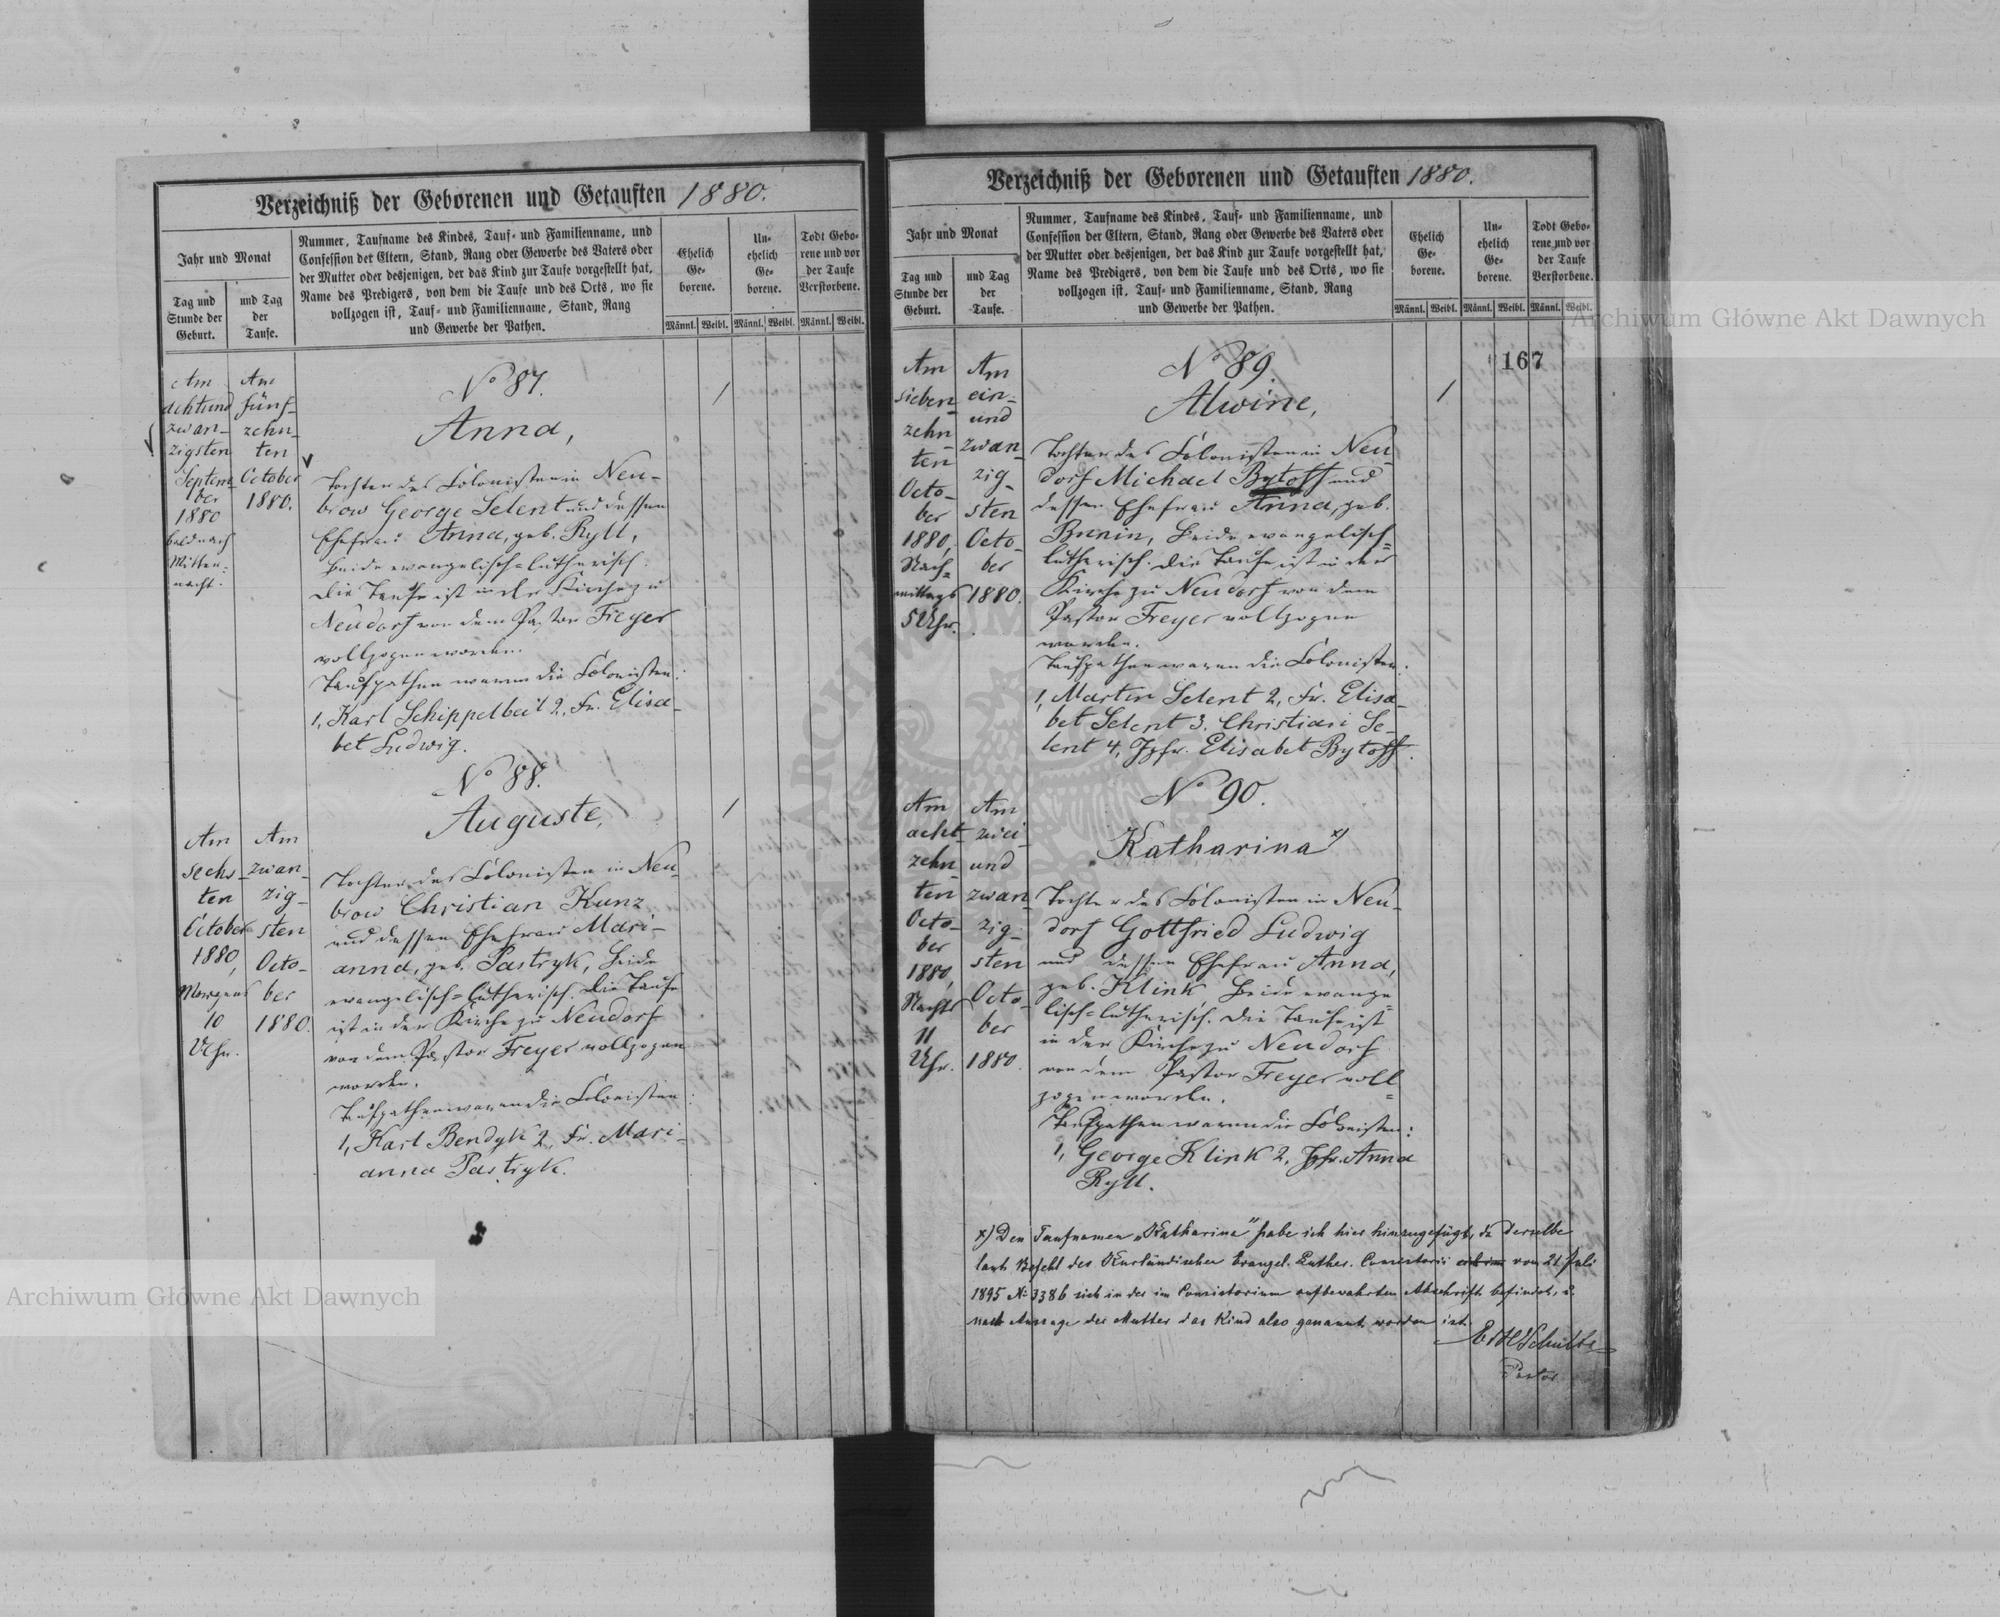 Verzeichniß der Geborenen und Getauften 1880.
Jahr und Monat
Tag und
Stunde der
Geburt.
und Tag
der
Taufe.
Nummer, Taufname des Kindes, Tauf- und Familienname, und
Confession der Eltern, Stand, Rang oder Gewerbe des Vaters oder
der Mutter oder desjenigen, der das Kind zur Taufe vorgestellt hat,
Name des Predigers, von dem die Taufe und des Orts, wo sie
vollzogen ist, Tauf- und Familienname, Stand, Rang
und Gewerbe der Pathen.
Ehelich
Ge-
borene.
Un-
ehelich
Ge-
borene.
Todt Gebo-
rene und vor
der Taufe
Verstorbene.
Männl. Weibl. Männl. Weibl. Männl. Weibl.
Am
achtund
zwan-
zigsten
Septem-
ber
1880
bald nach
Mitter-
nacht.
Am
fünf-
zehn-
ten
October
1880.
No 87.
Anna,
Tochter des Colonisten in Neu-
brow George Selent und dessen
Ehefrau Anna, geb. Ryll,
Beide evangelisch-lutherisch.
Die Taufe ist in der Kirche zu
Neudorf von dem Pastor Freyer
vollzogen worden.
Taufpathen waren die Colonisten:
1, Karl Schippelbeil 2, Fr. Elisa-
bet Ludwig.
/
Am
sechs-
ten
October
1880,
Morgens
10
Uhr.
Am
zwan-
zig-
sten
Octo-
ber
1880.
No 88.
Auguste,
Tochter des Colonisten in Neu-
brow Christian Kunz
und dessen Ehefrau Mari-
anna, geb. Pastryk, Beide
evangelisch-lutherisch. Die Taufe
ist in der Kirche zu Neudorf
von dem Pastor Freyer vollzogen
worden.
Taufpathen waren die Colonisten:
1, Karl Bendyk 2, Fr. Mari-
anna Pastryk.
/
Verzeichniß der Geborenen und Getauften 1880.
Jahr und Monat
Tag und
Stunde der
Geburt.
und Tag
der
Taufe.
Nummer, Taufname des Kindes, Tauf- und Familienname, und
Confession der Eltern, Stand, Rang oder Gewerbe des Vaters oder
der Mutter oder desjenigen, der das Kind zur Taufe vorgestellt hat,
Name des Predigers, von dem die Taufe und des Orts, wo sie
vollzogen ist, Tauf- und Familienname, Stand, Rang
und Gewerbe der Pathen.
Ehelich
Ge-
borene.
Un-
ehelich
Ge-
borene.
Todt Gebo-
rene und vor
der Taufe
Verstorbene.
Männl. Weibl. Männl. Weibl. Männl. Weibl.
167
Am
sieben-
zehn-
ten
Octo-
ber
1880,
Nach-
mittags
5 Uhr.
Am
ein-
und
zwan-
zig-
sten
Octo-
ber
1880.
No 89.
Alwine,
Tochter des Colonisten in Neu-
dorf Michael Bytoff und
dessen Ehefrau Anna, geb.
Bunin, Beide evangelisch-
lutherisch. Die Taufe ist in der
Kirche zu Neudorf von dem
Pastor Freyer vollzogen
worden.
Taufpathen waren die Colonisten:
1, Martin Selent 2, Fr. Elisa-
bet Selent 3, Christian Se-
lent 4, Jgfr. Elisabet Bytoff.
/
Am
acht-
zehn-
ten
Octo-
ber
1880,
Nachts
11
Uhr.
Am
zwei-
und
zwan-
zig-
sten
Octo-
ber
1880.
No 90.
Katharina x)
Tochter des Colonisten in Neu-
dorf Gottfried Ludwig
und dessen Ehefrau Anna,
geb. Klink Beide evange-
lisch-lutherisch. Die Taufe ist
in der Kirche zu Neudorf
von dem Pastor Freyer voll-
zogen worden.
Taufpathen waren die Colonisten:
1, George Klink 2, Jgfr. Anna
Ryll.
x) Den Taufnamen „Katharina" habe ich hier hinzugefügt, da derselbe
laut Befehl des Kurländischen Evangel. Luther. Consistorii vom 21 Juli
1895 No 3386 sich in der im Consistorium aufbewahrten Abschrift befindet, u.
nach Aussage der Mutter das Kind also genannt worden ist.
Schultz
Pastor
Archiwum Główne Akt Dawnych
Archiwum Główne Akt Dawnych